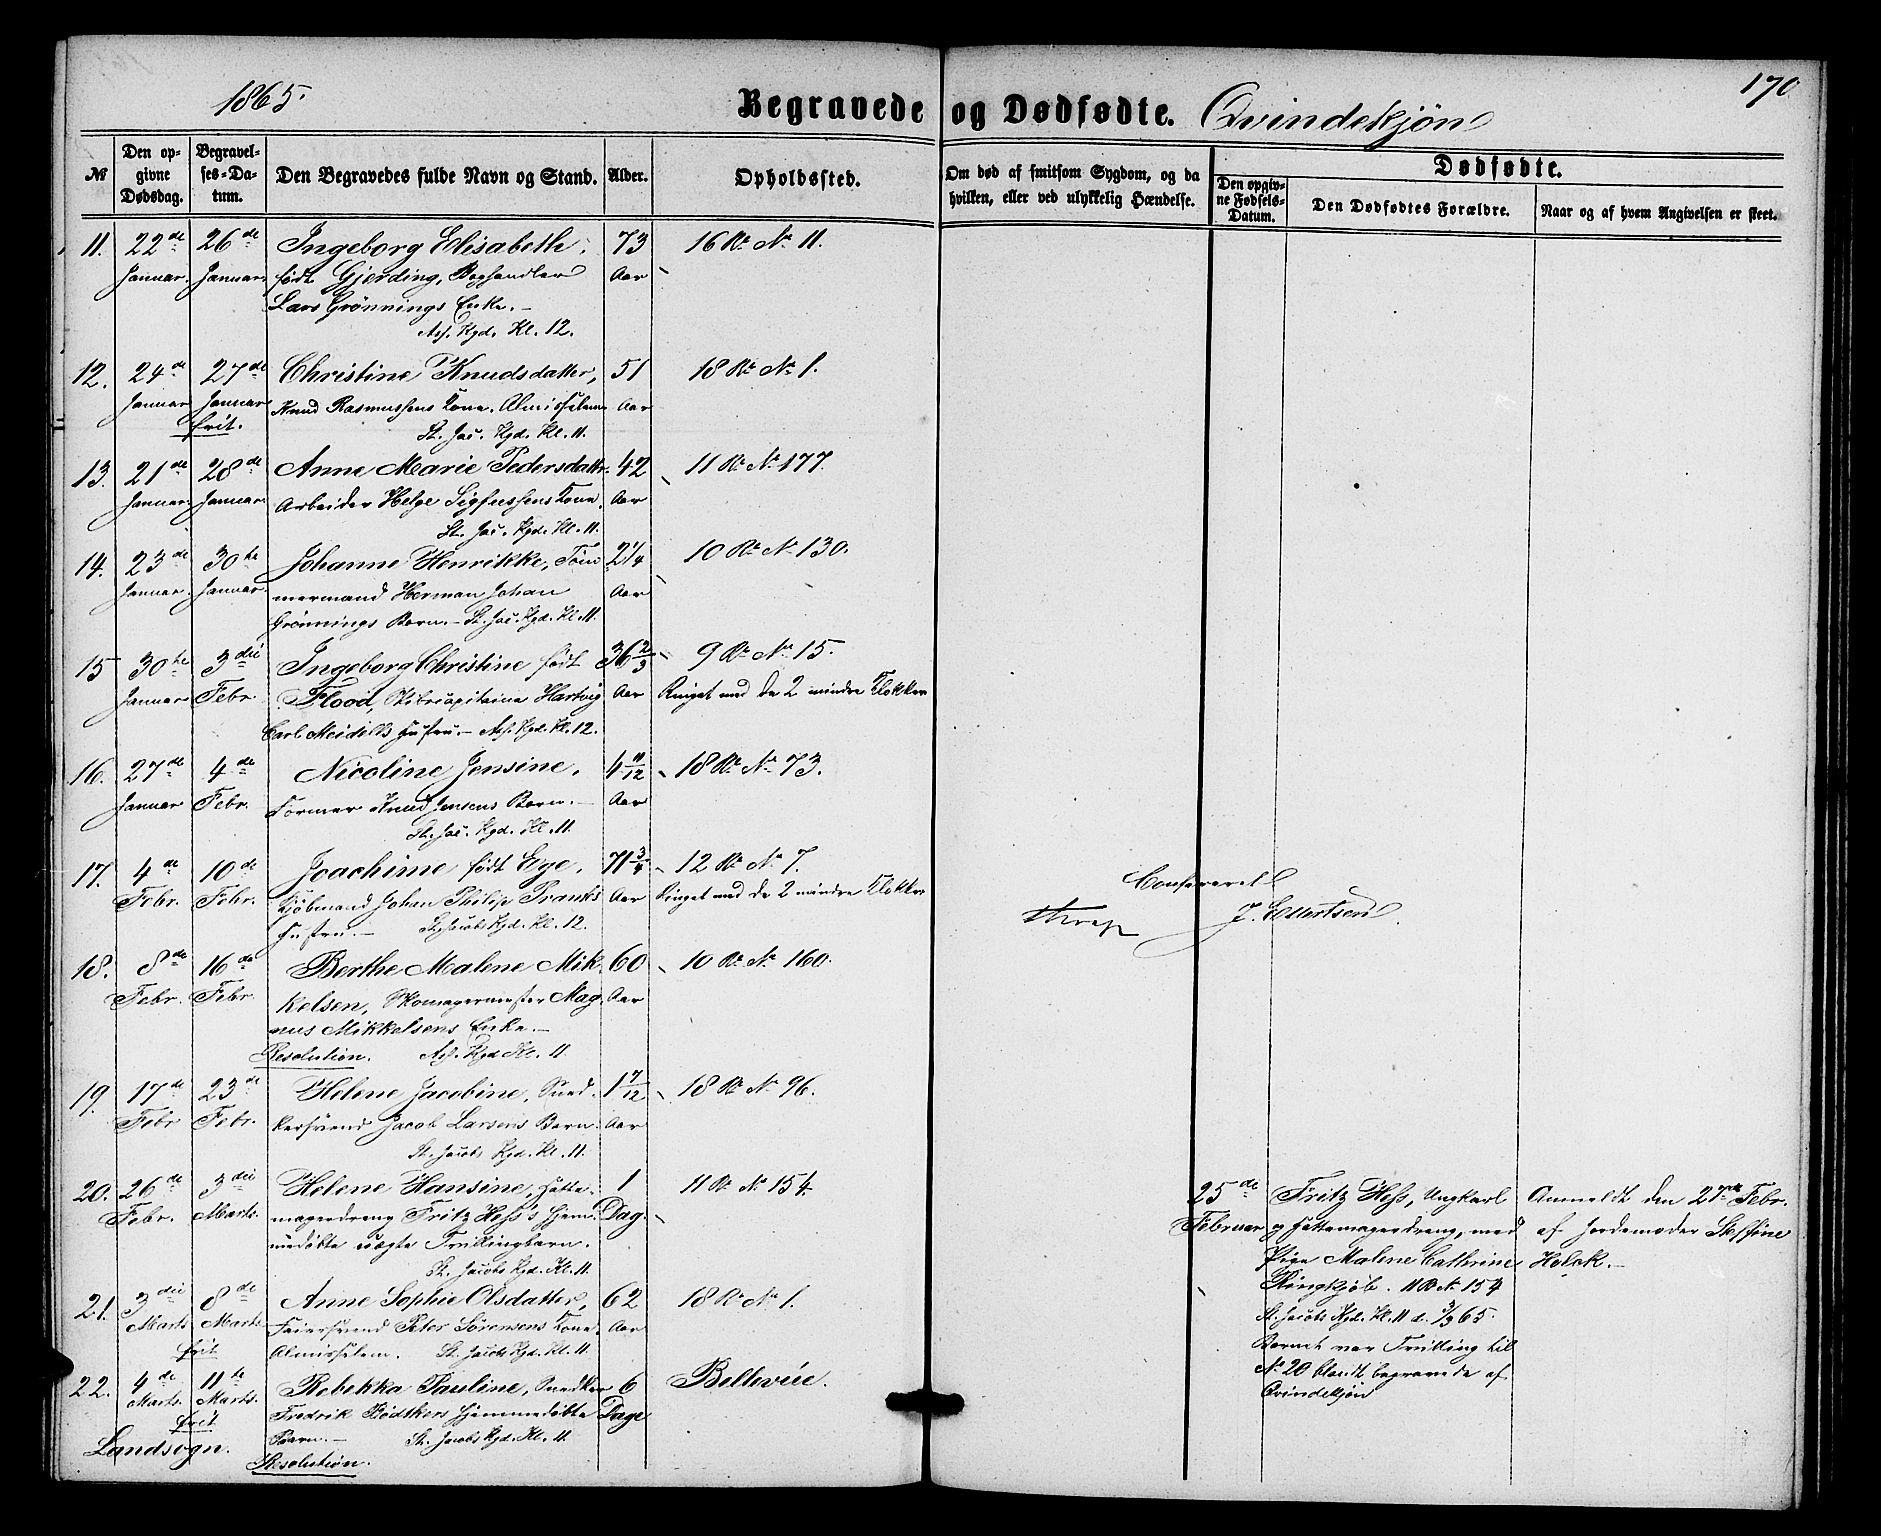 1865.
Begravede og Dødfødte. Qvindekjøn
170
№
Den opgivne Dødsdag.
Begravelses-Datum.
Den Begravedes fulde Navn og Stand.
Alder.
Opholdssted.
Om død af smitsom Sygdom, og da hvilken, eller ved ulykkelig Hændelse.
Dødfødte.
Den opgivne Fødsels-Datum.
Den Dødfødtes Forældre.
Naar og af hvem Angivelsen er skeet.
11. 22de 26de Ingeborg Elisabeth, 73 16 R. No 11.
Januar. Januar. født Gjerding, Boghandler Aar
Lars Grønnings Enke.-
Ass. Kgd. Kl. 12.
12. 24de 27de Christine Knudsdatter, 51 18 R. No 1.
Januar Januar Knud Rasmussens Kone. Almisselem Aar
frit. St. Jac. Kgd. Kl. 11.
13. 21de 28de Anne Marie Pedersdatter 42 11 R. No 177.
Januar. Januar. Arbeider Helge Sigfussens Kone. Aar
St. Jac. Kgd. Kl. 11.
14. 23de 30te Johanne Henrikke, Tøm 2 1/4 10 R. No 130.
Januar. Januar. mermand Herman Johan Aar
Grønnings Barn.- St. Jac. Kgd. Kl. 11.
15 30te 3die Ingeborg Christine født 36 2/3 9 R. No 15.
Januar Febr. Flood, Skibscapitaine Hartvig Aar Ringet med de 2 mindre Klokker
Carl Meidells Hustru.- Ass. Kgd. Kl. 12.
16. 27de 4de Nicoline Jensine, 4 11/12 18 R. No 73.
Januar Febr. Former Knud Jensens Barn.- Aar
St. Jac. Kgd. Kl. 11.
17. 4de 10de Joachime født Ege, 71 3/4 12 R. No 7.
Febr. Febr. Kjøbmand Johan Philip Franks Aar Ringet med de 2 mindre Klokker
Hustru.- St. Jacobs Kgd. Kl. 12.
Confereret
J. Ellertsen
18. 8de 16de Berthe Malene Mik 60 10 R. No 160.
Febr. Febr. kelsen, Skomagermester Mag Aar
nus Mikkelsens Enke.-
Resolution. Ass. Kgd Kl. 11.
19. 17de 23de Helene Jacobine, Sned 1 7/12 18 R. No 96.
Febr Febr. kersvend Jacob Larsens Barn. Aar
St. Jacobs Kgd. Kl. 11.
20. 26de 3die Helene Hansine, Hatte 1 11 R. No 154.
Febr. Marts. magerdreng Fritz Hess's hjem Dag.
medøbte uægte Tvillingbarn.
St. Jacobs Kgd. Kl. 11.
25de Fritz Hess, Ungkarl Anmeldt den 27de Febr.
Februar og Hattemagerdreng, med af Jordemoder Steffine
Pige Malene Cathrine Holck.-
Ringkjøb. 11 R No 154
St. Jacobs Kgd. Kl. 11 d. 3/3 65.
Barnet var Tvilling til
No 20 blandt begravede af
Qvindekjøn
21. 3die 8de Anne Sophie Olsdatter, 62 18 R. No 1.
Marts Marts. Feiersvend Peter Sørensens Kone. Aar
frit Almisselem. St. Jacobs Kgd. Kl. 11.
22. 4de 11te Rebekka Pauline, Snedker 6 Bellevüe.
Marts. Marts. Fredrik Bødtkers hjemmedøbte Dage
frit Barn.- St. Jacobs Kgd. Kl. 11.
Landsogn. Resolution.